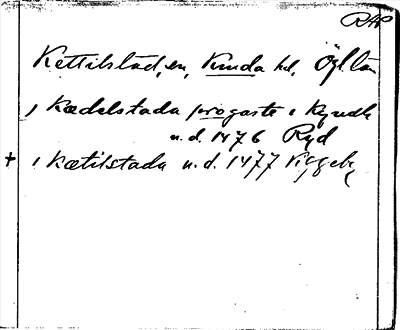 RAP
Kettilstad, sn, Kinda hd, Ögl. län
i Kædelstada progaste i Kyndh
u.d. 1476 Ryd
+ i Kætilstada u.d. 1477 Viggeby